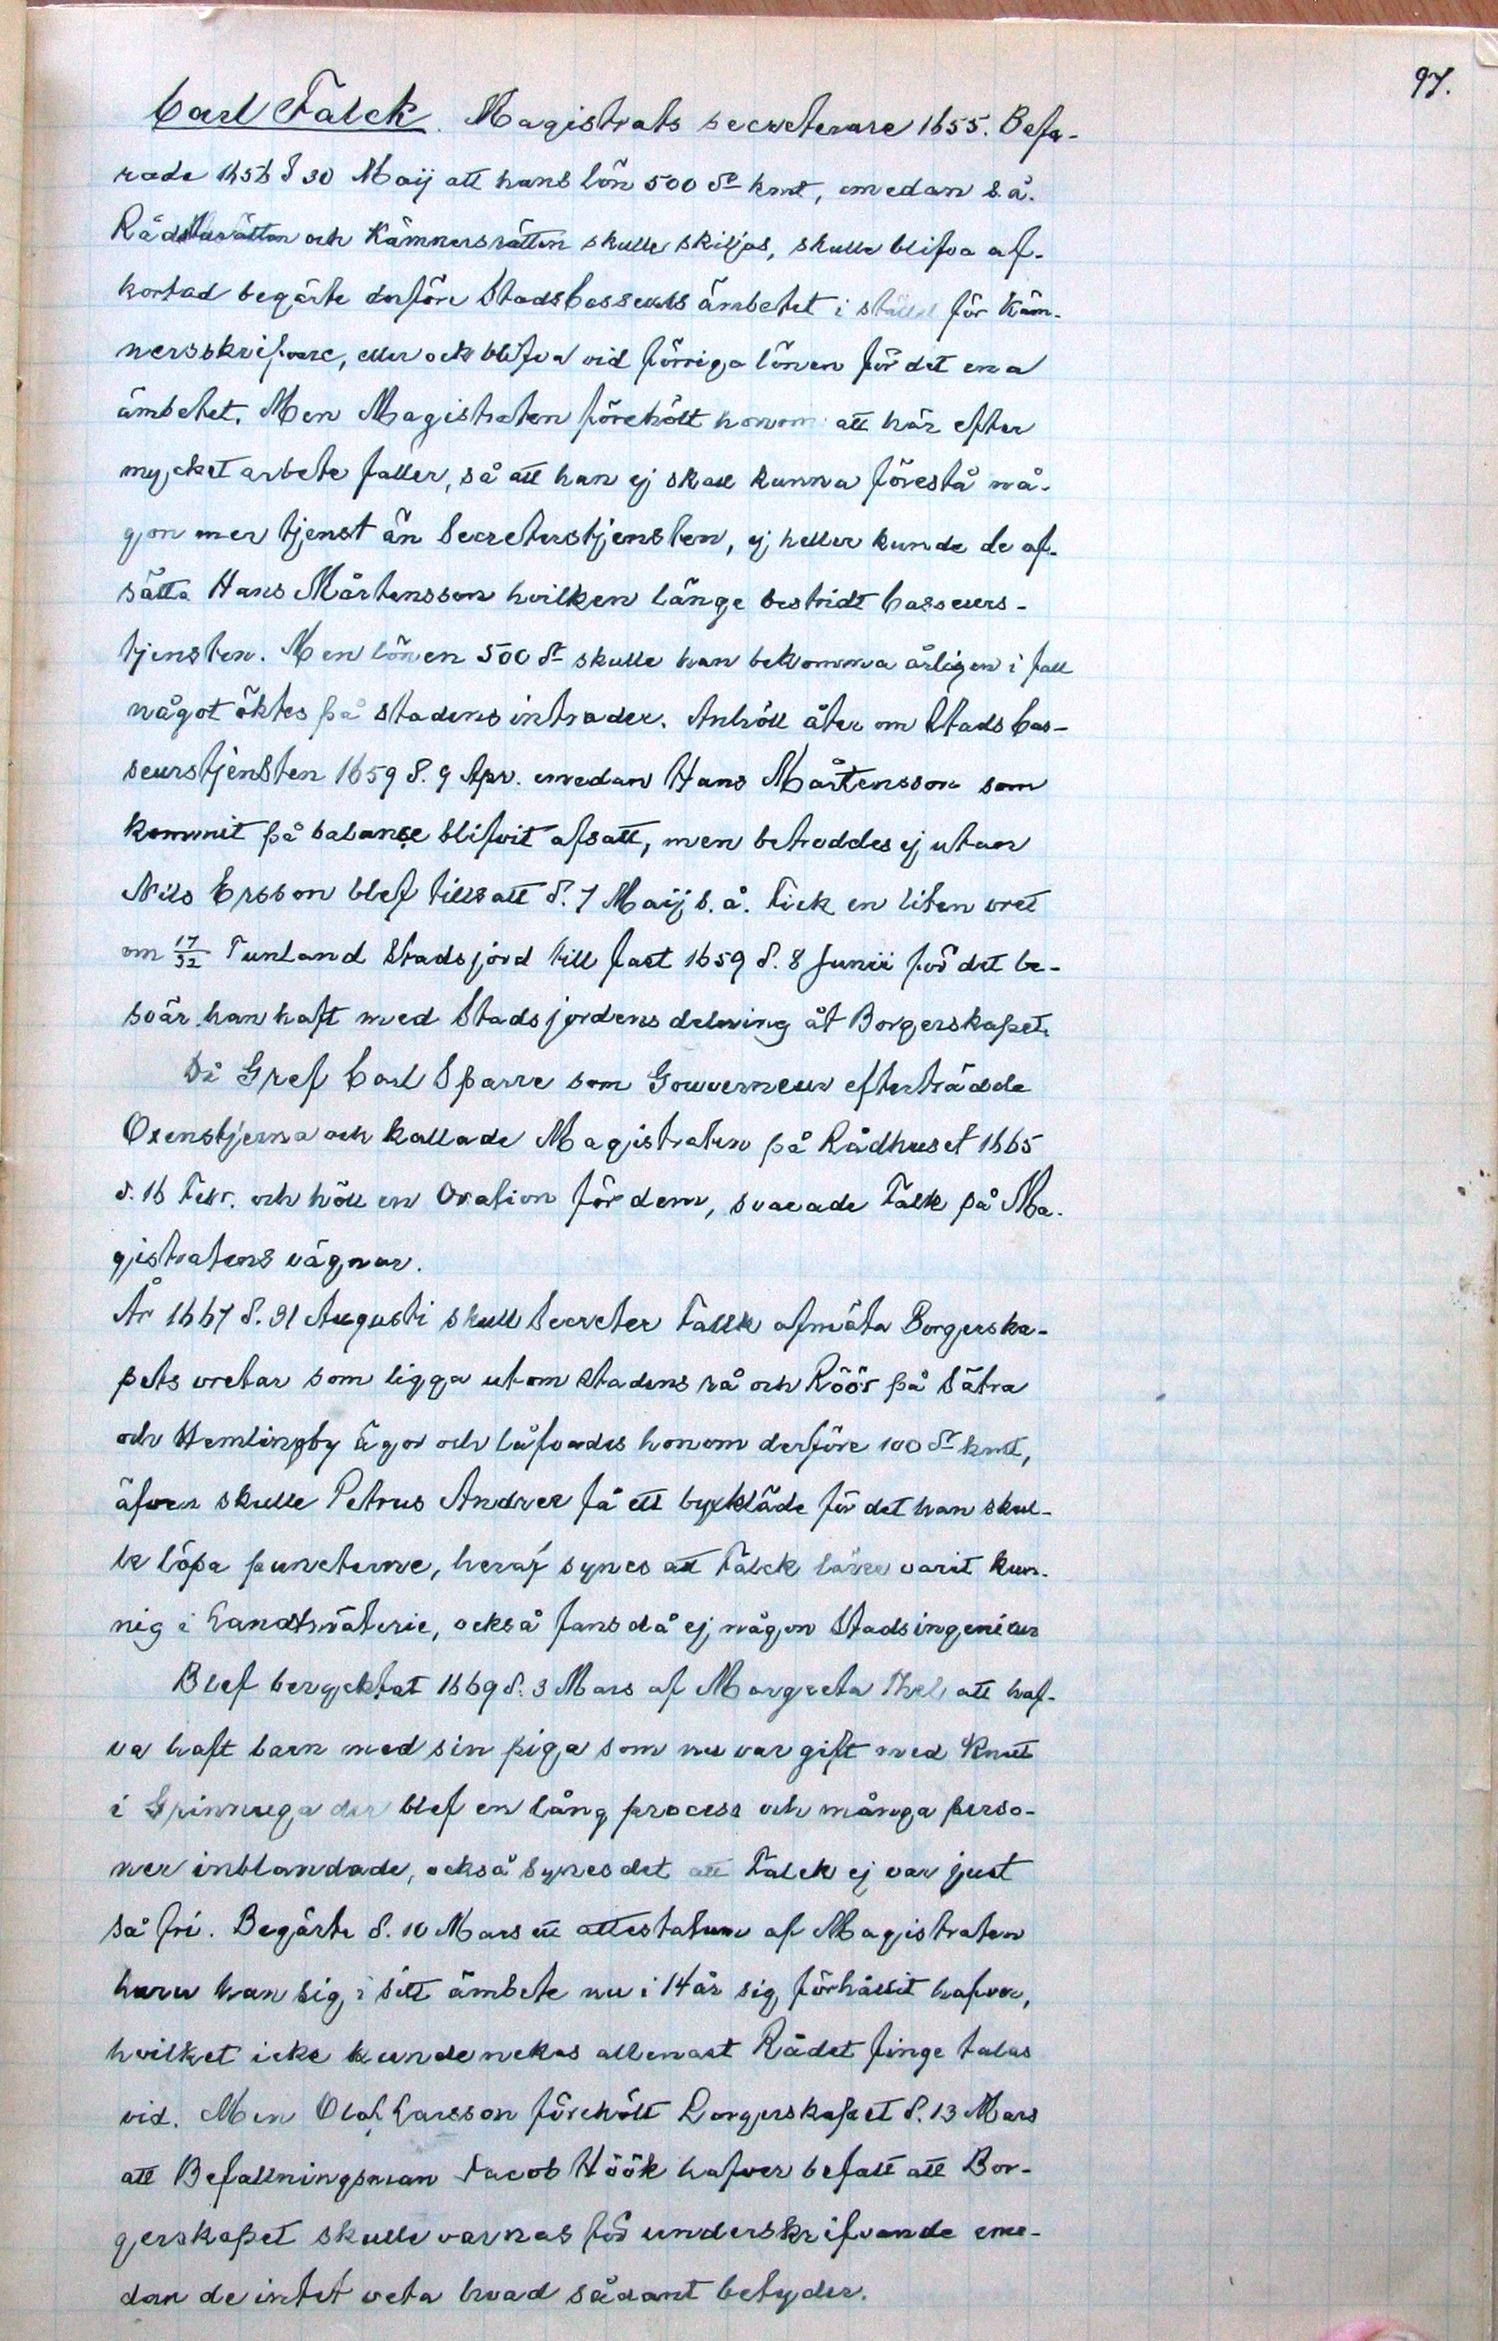 97.
Carl Falck. Magistrats secreterare 1655. Befa-
rade 1656 d 30 Maij att hans lön 500 dr kmt, emedan s.å.
Rådsturätten och Kämnersrätten skulle skiljas, skulle blifva af-
kortad begärte derföre Stads Casseurs ämbetet i stället för Käm-
nersskrifvare, eller ock blifva vid förriga lönen för det ena
ämbetet. Men Magistraten förehölt honom att här efter
mycket arbete faller, så att han ej skall kunna förestå nå-
gon mer tjenst än Secreterstjensten, ej heller kunde de af-
sätta Hans Mårtensson hvilken länge bestridt Casseurs-
tjensten. Men lönen 500 dr skulle han bekomma årligen i fall
något öktes på stadens intrader. Anhöll åter om Stads Cas-
seurstjensten 1659 d. 9 Apr. emedan Hans Mårtensson som
kommit på balance blifvit afsatt, men betroddes ej utan
Nils Ersson blef tillsatt d. 7 Maij s.å. Fick en liten vret
om 17/32 Tunland Stadsjord till fast 1659 d. 8 Junii för det be-
svär han haft med Stadsjordens delning åt Borgerskapet.
Då Gref Carl Sparre som Gouverneur efterträdde
Oxenstjerna och kallade Magistraten på Rådhuset 1665
d. 16 Febr. och höll en Oration för dem, svarade Falk på Ma-
gistratens vägnar.
År 1667 d. 31 Augusti skull Secreter Falk afmäta Borgerska-
pets vretar som ligga utom stadens rå och Röör på Sätra
och Hemlingby ägor och låfvades honom derföre 100 dr kmt,
äfven skulle Petrus Andreæ få ett byxkläde för det han skul-
le löpa puncterne, heraf synes att Falck lärer varit kun-
nig i Landtmäterie, också fans då ej någon Stadsingenieur
Blef beryktat 1669 d. 3 Mars af Margreta Thel att haf-
va haft barn med sin piga som nu var gift med Knut
i der blef en lång process och många perso-
ner inblandade, också synes det att Falck ej var just
så fri. Begärte d. 10 Mars ett attestatum af Magistraten
huru han sig i sitt ämbete nu i 14 år sig förhållit hafver,
hvilket icke kunde nekas allenast Rådet finge talas
vid. Men Olof Larsson förehölt Borgerskapet d. 13 Mars
att Befallningsman Jacob Höök hafver befalt att Bor-
gerskapet skulle varnas för underskrifvande eme-
dan de intet veta hvad sådant betyder.